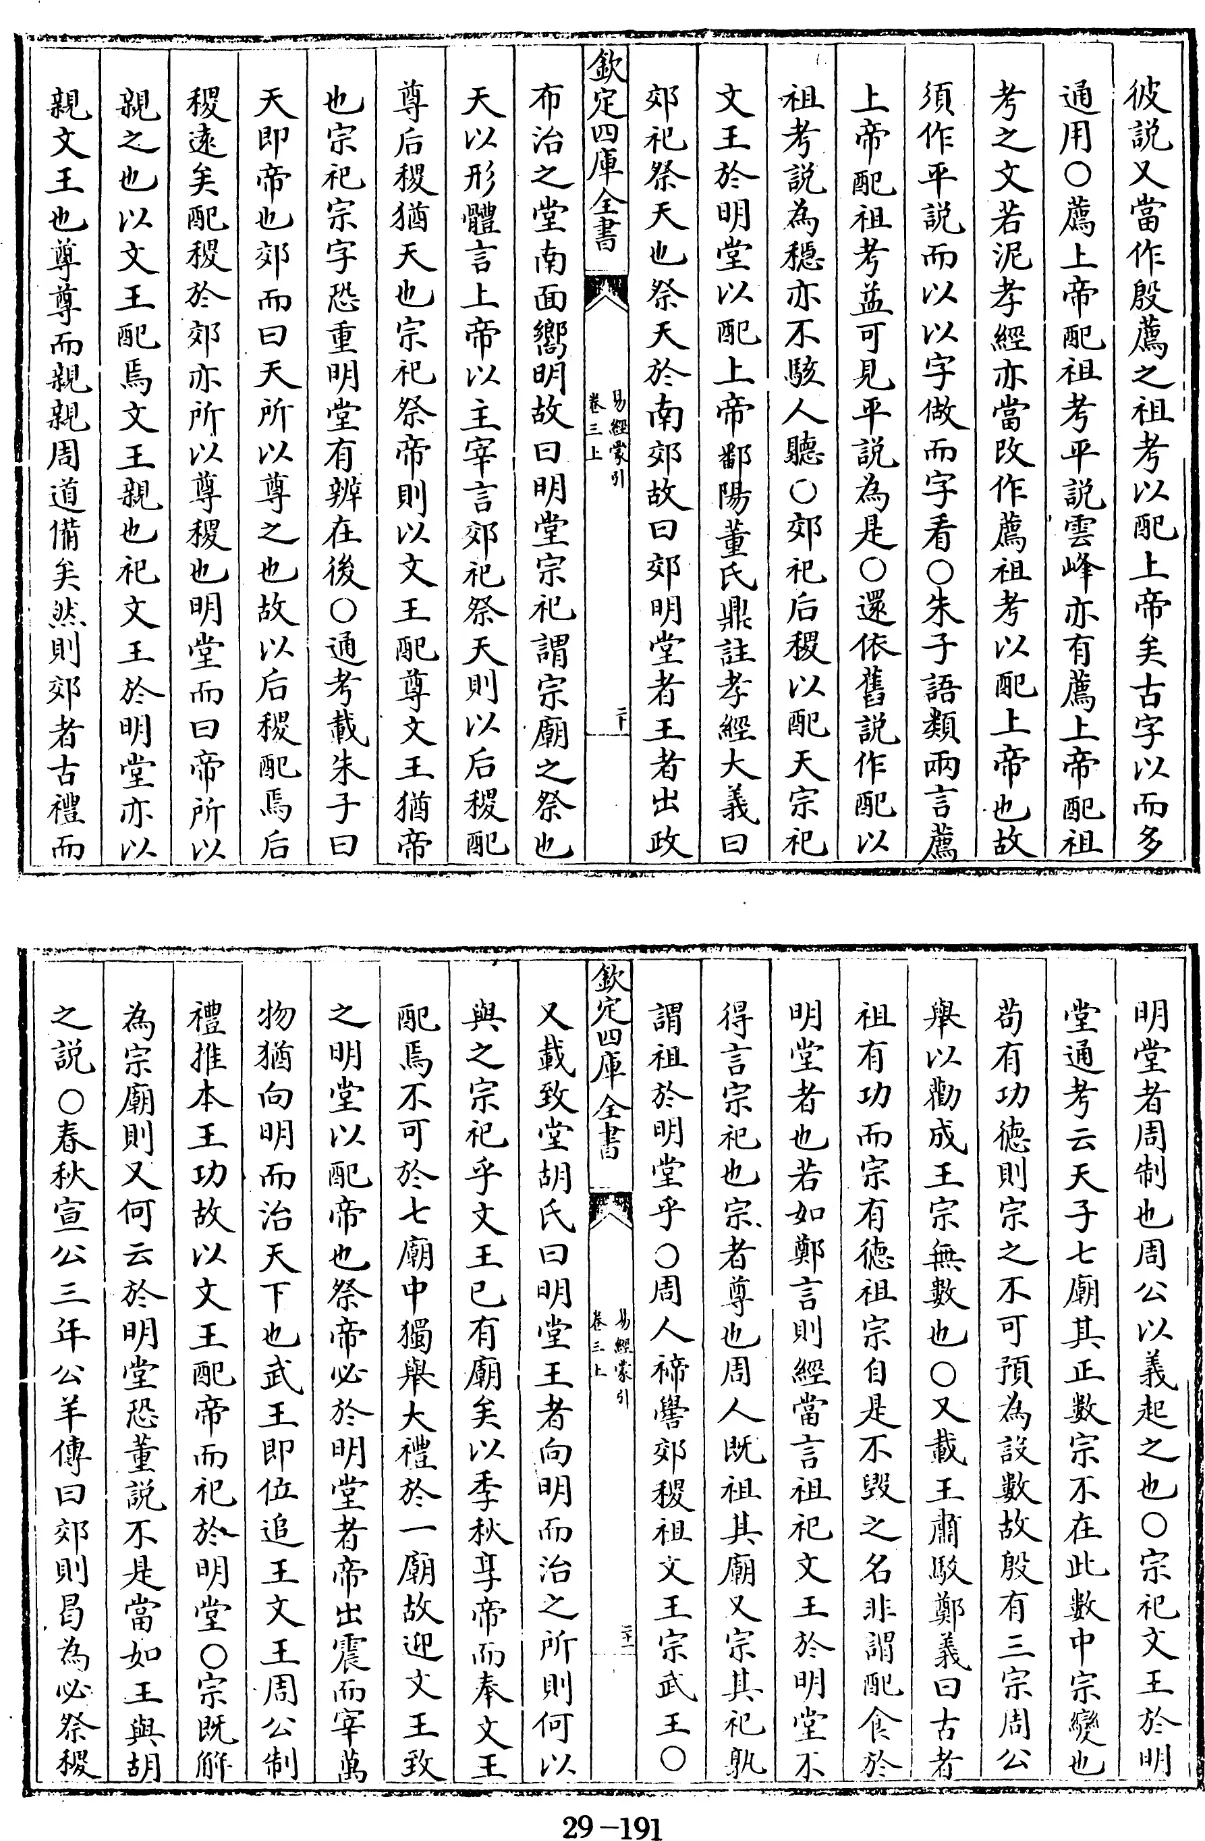 彼説又當作殷薦之祖考以配上帝矣古字以而多
通用○薦上帝配祖考平説雲峰亦有薦上帝配祖
考之文若泥孝經亦當改作薦祖考以配上帝也故
須作平説而以以字做而字看○朱子語類兩言薦
上帝配祖考益可見平説為是○還依舊説作配以
祖考説為穏亦不駭人聽○郊祀后稷以配天宗祀
文王於明堂以配上帝鄱陽董氏鼎註孝經大義曰
郊祀祭天也祭天於南郊故曰郊明堂者王者出政
欽定四庫全書
易經蒙引
卷三上
二十
布治之堂南面嚮明故曰明堂宗祀謂宗廟之祭也
天以形體言上帝以主宰言郊祀祭天則以后稷配
尊后稷猶天也宗祀祭帝則以文王配尊文王猶帝
也宗祀宗字恐重明堂有辨在後○通考載朱子曰
天即帝也郊而曰天所以尊之也故以后稷配焉后
稷逺矣配稷於郊亦所以尊稷也明堂而曰帝所以
親之也以文王配焉文王親也祀文王於明堂亦以
親文王也尊尊而親親周道備矣然則郊者古禮而
明堂者周制也周公以義起之也○宗祀文王於明
堂通考云天子七廟其正數宗不在此數中宗變也
苟有功徳則宗之不可預為設數故殷有三宗周公
舉以勸成王宗無數也○又載王肅駁鄭義曰古者
祖有功而宗有徳祖宗自是不毀之名非謂配食於
明堂者也若如鄭言則經當言祖祀文王於明堂不
得言宗祀也宗者尊也周人既祖其廟又宗其祀孰
謂祖於明堂乎○周人禘嚳郊稷祖文王宗武王○
欽定四庫全書
易經蒙引
卷三上
二十一
又載致堂胡氏曰明堂王者向明而治之所則何以
與之宗祀乎文王已有廟矣以季秋享帝而奉文王
配焉不可於七廟中獨舉大禮於一廟故迎文王致
之明堂以配帝也祭帝必於明堂者帝出震而宰萬
物猶向明而治天下也武王即位追王文王周公制
禮推本王功故以文王配帝而祀於明堂○宗既解
為宗廟則又何云於明堂恐董説不是當如王與胡
之説○春秋宣公三年公羊傳曰郊則曷為必祭稷
29-191